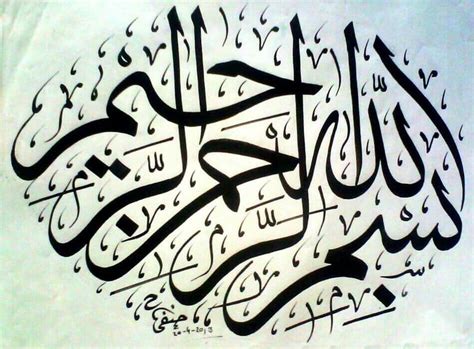 بسم الله الرحمن الرحيم
حنفي
20-4-2013